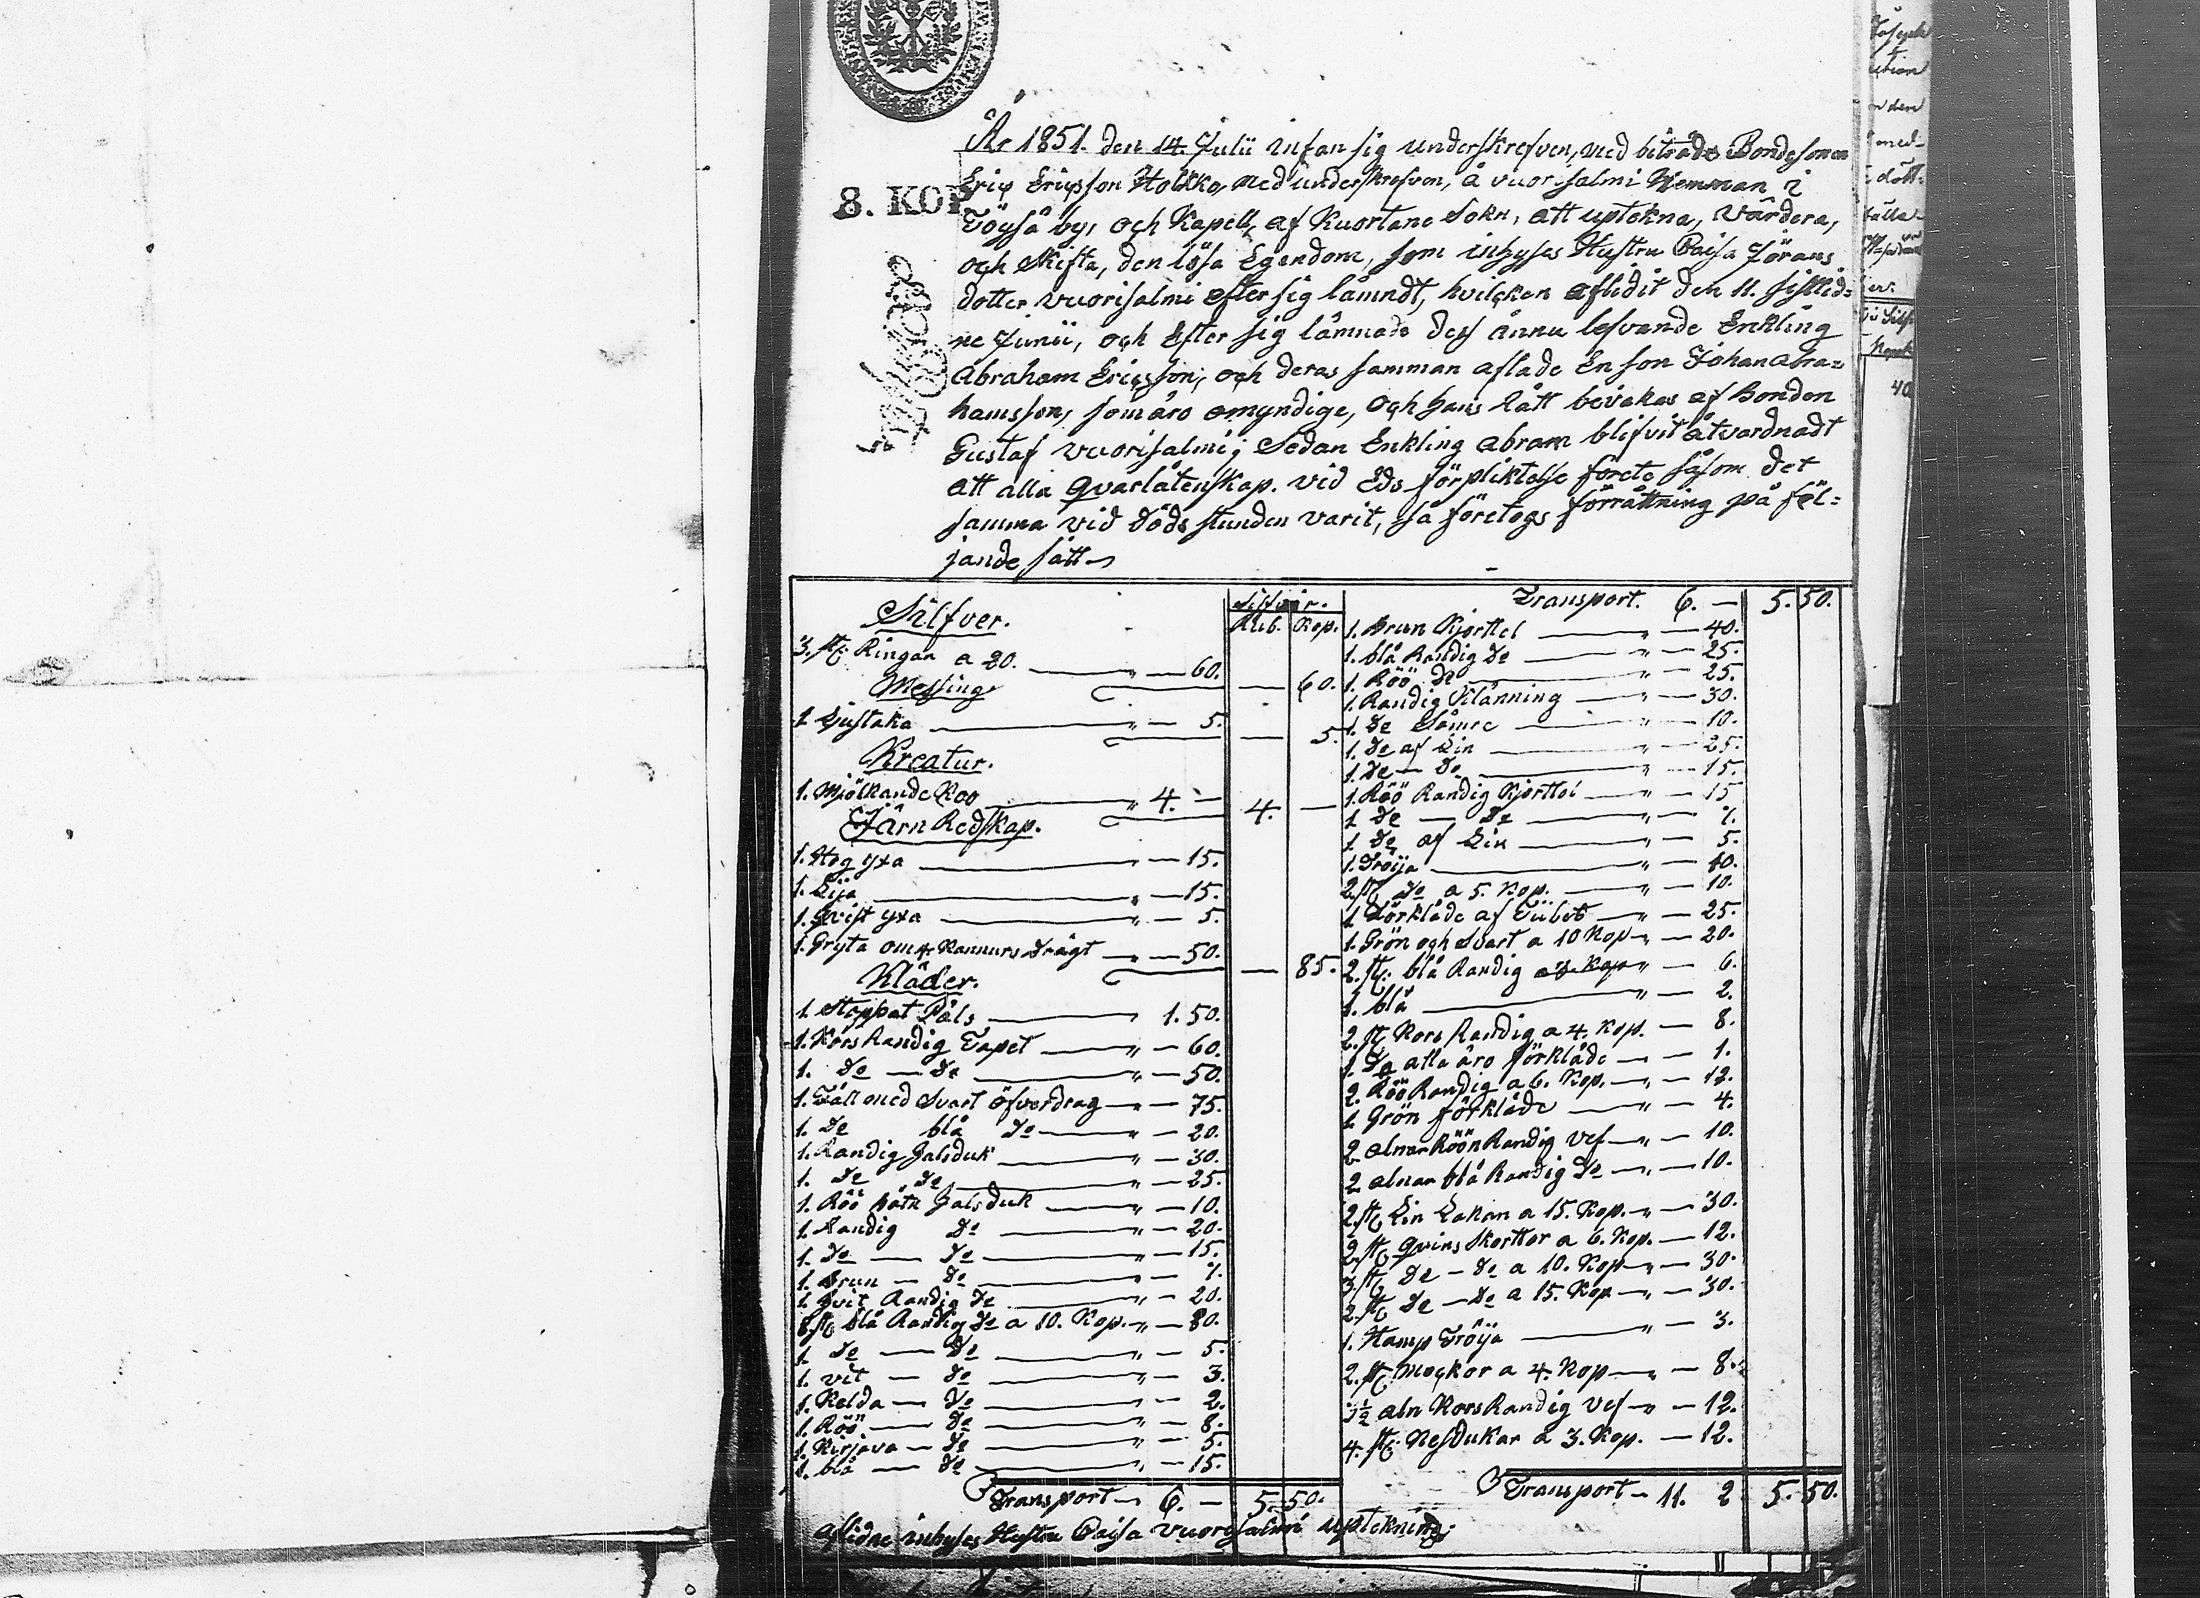 År 1851. den 14. Julii infan sig underskrefven, med biträde Bondesonen
Eriq Ericsson Holkko, med underskrefven, å vuorisalmi Hemman i
8. KOP
Töysä by, och Kapell, af Kuortane Sokn, att uptekna, värdera,
och skifta, den lösa Egendom, som inhyses Hustru Caisa Jörans
dotter vuorisalmi efter sig lämndt, hvilcken aflidit den 11. sistlid=
ne Junii, och Efter sig lämnade dess ännu lefvande Enkling
Abraham Ericsson, och deras samman aflade En son Johan abra=
hamsson, som äro omyndige, och hans rätt bevakas af Bonden
Gustaf vuorisalmi; Sedan Enkling abram blifvit åtvardnadt
att alla qvarlåtenskap. vid Eds förpliktelse förete såsom det
samma vid döds stunden varit, så företogs förrättning på föl=
jande sätt
Silfver.
Rub. Kop.
3. st. Ringar a 20. " — 60.
— 60.
Messing
1 Ljustaka " — 5.
— 5.
Kreatur.
1. Mjölkande Koo " 4. —
4. —
Järn Redskap.
1. Hog yxa " — 15.
1. Lija " — 15.
1. Qvist yxa " — 5.
1. Gryta om 4. Kannurs drägt " — 50.
— 85.
Kläder.
1. Stoppat Päls 1. 50.
1. Kors Randig Tapet " — 60.
1. do — do " — 50.
1. Fäll med Svart öfverdrag " — 75.
1. do blå do " — 20.
1. Randig halsduk " — 30.
1. do do " — 25.
1. Röö halsduk " — 10.
1. Randig do " — 20.
1. do — do " — 15.
1. Brun — do " — 7.
1. hvit Randig do " — 20.
8. st blå Randig do a 10. Kop. " — 80.
1. do — do " — 5.
1. vit — do " — 3.
1. Kelda — do " — 2.
1. Röö — do " — 8.
1. Kirjava — do " — 5.
1. blå — do " — 15.
Transport 6. — 5. 50.
Transport. 6. — 5. 50.
1. Brun Kjorttel " — 40.
1. blå Randig do " — 25.
1. Röö do " — 25.
1. Randig Klänning " — 30.
1. do Sämre " — 10.
1. do af Lin " — 25.
1. do — do " — 15.
1. Röö Randig Kjorttel " — 15
1 do — do " — 7.
1 do af Lin " — 5.
1. Tröija " — 40.
2. st do a 5. Kop. " — 10.
1 Förkläde af " — 25.
1. Grön och Svart a 10 Kop " — 20.
2. st. blå Randig a 3. Kop " — 6.
1. blå " — 2.
2. st Kors Randig a 4. Kop. — 8.
1. do alla äro förkläde — 1.
2. Röö Randig a 6. Kop. " — 12.
1 Grön förkläde " — 4.
2 alnar Röön Randig vef " — 10.
2 alnar blå Randig do " — 10.
2. st Lin Lakan a 15. Kop. " — 30.
2. st qvins skorttor a 6. Kop. — 12.
3. st do — do a 10. Kop " — 30.
2. st do — do a 15. Kop " — 30.
1. Hamp Tröija " — 3.
2. st Mockor a 4. Kop " — 8.
aln Kors Randig vef " — 12.
4. st. Nesdukar a 3. Kop. — 12.
Transport 11. 2 5. 50.
aflidne inhyses Hustru Caisa vuorisalmi uptekning.